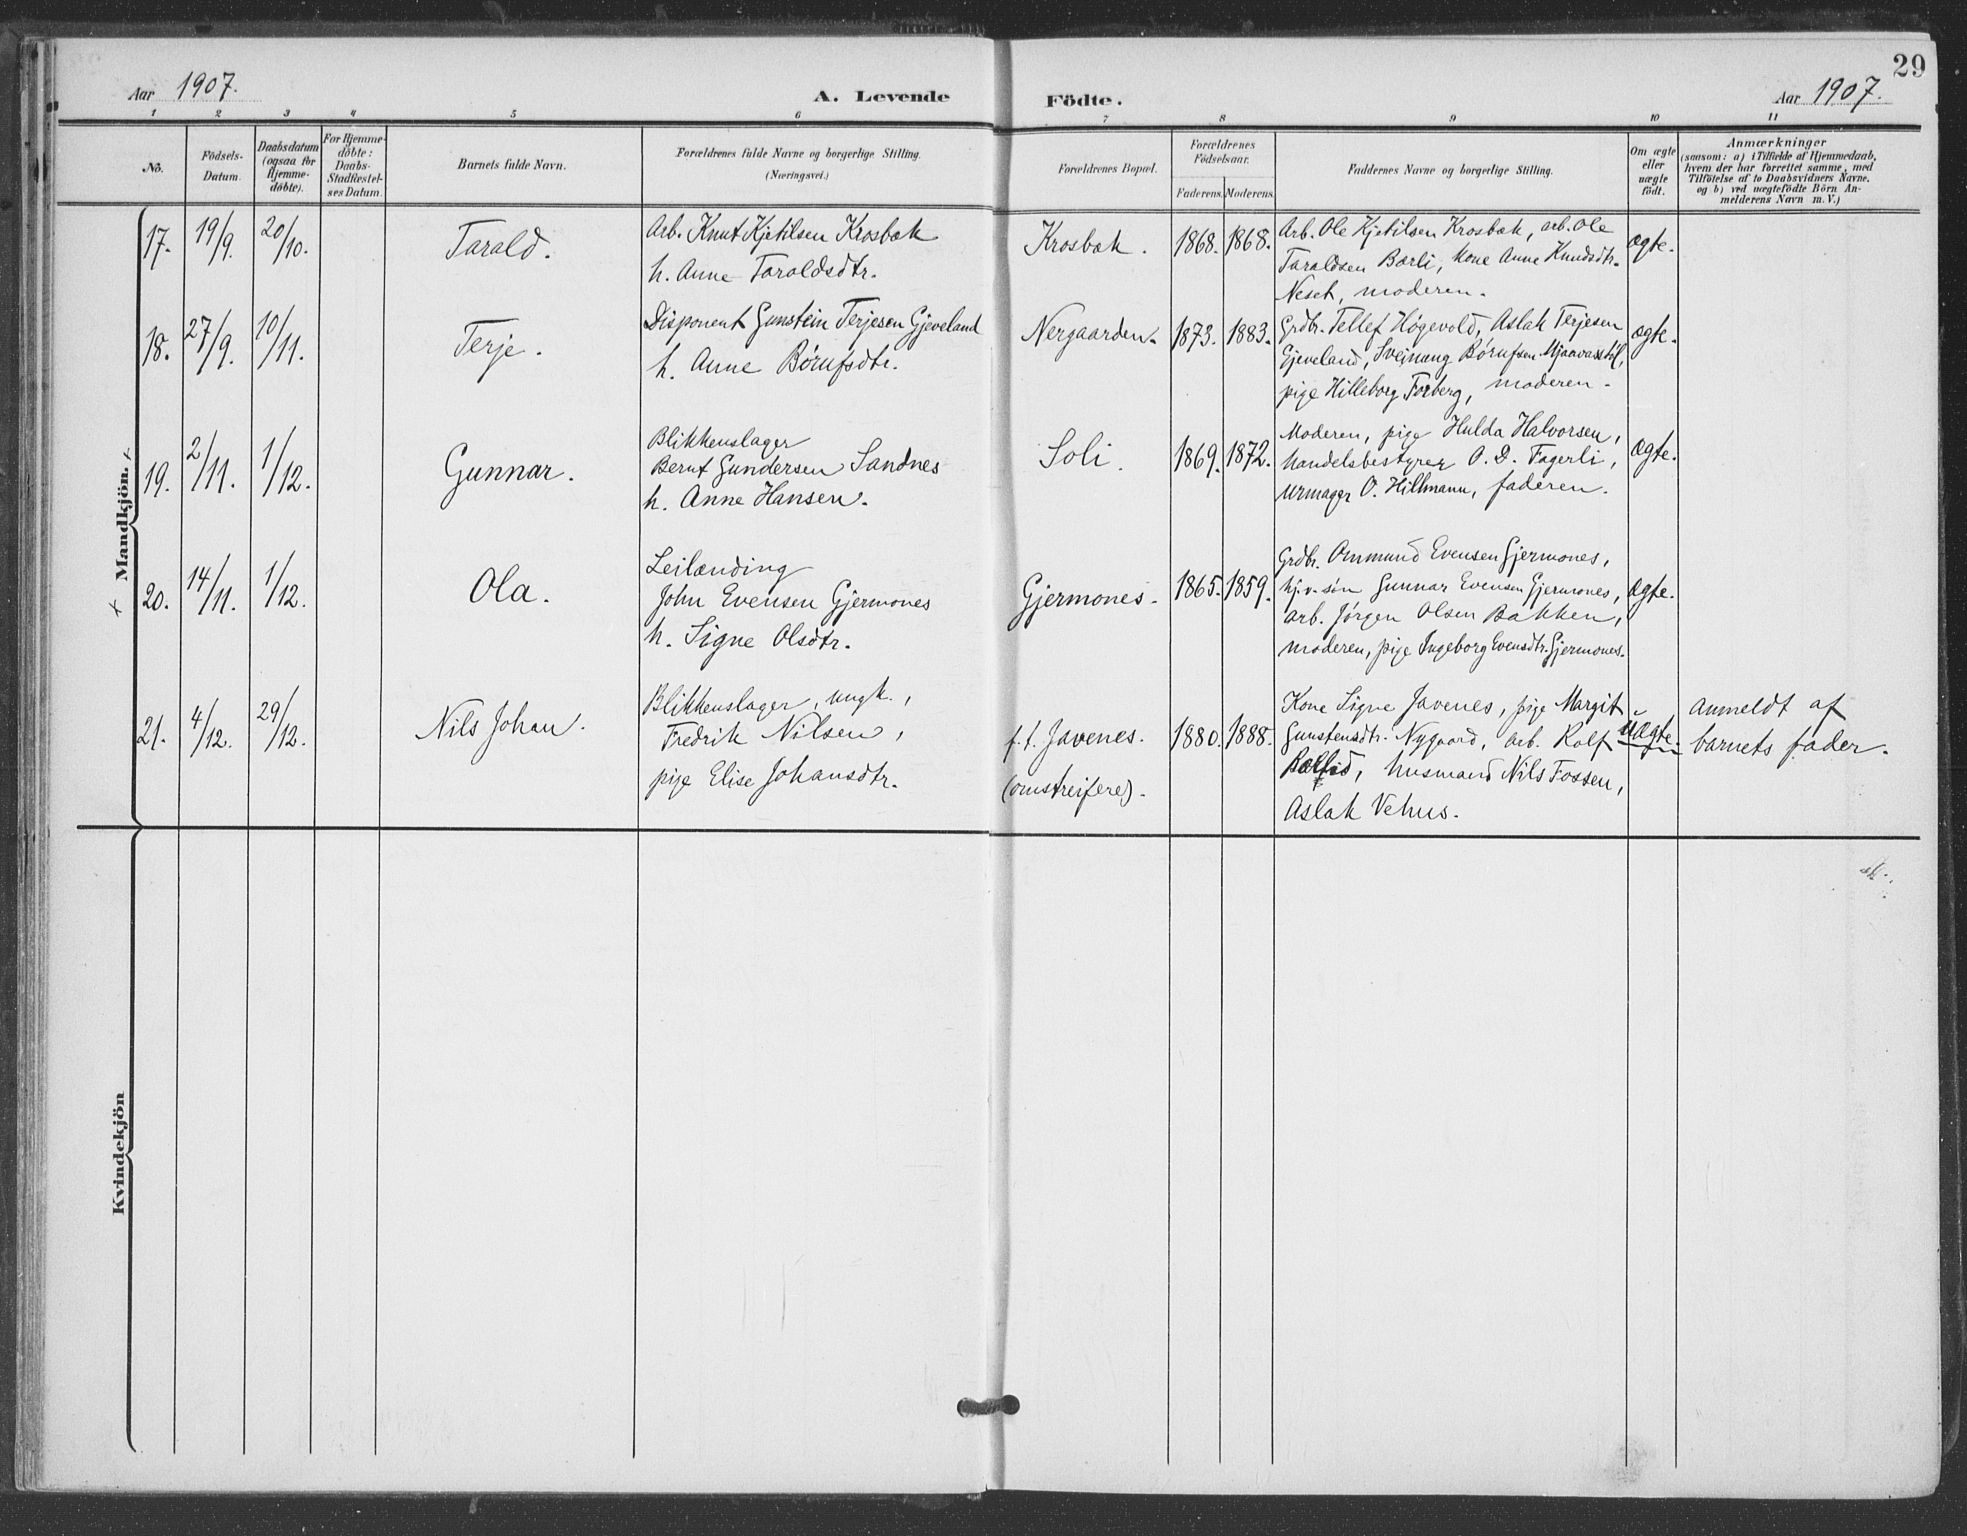 29
Aar 1907.
A. Levende Födte.
Aar 1907.
1 2 3 4 5 6 7 8 9 10 11
No.
Födsels-
Datum.
Daabsdatum
(ogsaa for
Hjemme-
döbte).
For Hjemme-
döbte:
Daabs-
Stadfæstel-
ses Datum.
Barnets fulde Navn.
Forældrenes fulde Navne og borgerlige Stilling.
(Næringsvei.)
Forældrenes Bopæl.
Forældrenes
Födselsaar.
Faderens. Moderens.
Faddernes Navne og borgerlige Stilling.
Om ægte
eller
uægte
födt.
Anmærkninger
(saasom: a) i Tilfælde af Hjemmedaab,
hvem der har forrettet samme, med
Tilföielse af to Daabsvidners Navne.
og b) ved uægtefödte Börn An-
melderens Navn m. V.)
Mandkjön.
17. 19/9. 20/10. Tarald.
Arb. Knut Kjetilsen Krosbæk
h. Anne Taraldsdtr.
Krosbæk. 1868. 1868.
Arb. Ole Kjetilsen Krosbæk, arb. Ole
Taraldsen Bærli, kone Anne Knudsdtr.
Neset, moderen.
ægte.
18. 27/9. 10/11. Terje.
Disponent Gunstein Terjesen Gjeveland
h. Anne Børufsdtr.
Nergaarden. 1873. 1883.
Grdbr. Tellef Høgevold, Aslak Terjesen
Gjeveland, Sveinung Børufsen Mjaavasstøl,
pige Hilleborg Forberg, moderen.
ægte.
19. 2/11. 1/12. Gunnar.
Blikkenslager
Bernt Gundersen Sandnes
h. Anne Hansen.
Soli. 1869. 1872.
Moderen, pige Hulda Halvorsen,
handelsbestyrer O. D. Fagerli,
urmager O. Hillmann, faderen.
ægte.
20. 14/11. 1/12. Ola.
Leilænding
John Evensen Gjermones
h. Signe Olsdtr.
Gjermones. 1865. 1859.
Grdbr. Ommund Evensen Gjermones,
hj.v. søn Gunnar Evensen Gjermones,
arb. Jørgen Olsen Bakken,
moderen, pige Ingeborg Evensdtr. Gjermones.
ægte.
21. 4/12. 29/12. Nils Johan.
Blikkenslager, ungk.,
Fredrik Nilsen,
pige Elise Johansdtr.
f. t. Javenes.
(omstreifere).
1880. 1888.
Kone Signe Javenes, pige Margit
Gunstensdtr. Nygaard, arb. Rolf
husmand Nils Fossen,
Aslak Vehus.
uægte.
Anmeldt af
barnets fader.
Kvindekjön